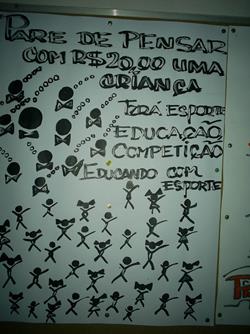 PARE DE PENSAR
COM R$20,00 UMA
CRIANÇA
FARÁ ESPORTE
EDUCAÇÃO
COMPETIÇÃO
EDUCANDO COM
ESPORTE